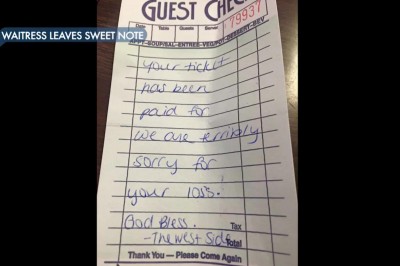 WAITRESS LEAVES SWEET NOTE
GUEST CHEC
79937
Date Table Guests Server
APPT-SOUP/SAL-ENTREE-VEG/POT-DESSERT-BEV
your ticket
has been
paid for
we are terribly
sorry for
your loss.
God Bless. Tax
-The West Side Total
Thank You — Please Come Again